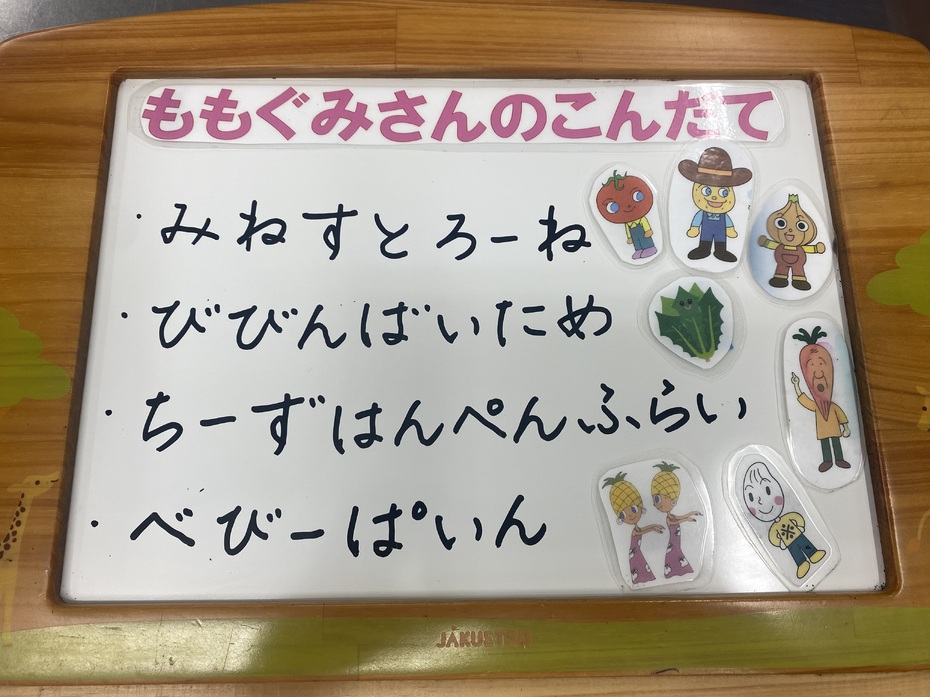 ももぐみさんのこんだて
・みねすとろーね
・びびんばいため
・ちーずはんぺんふらい
・べびーぱいん